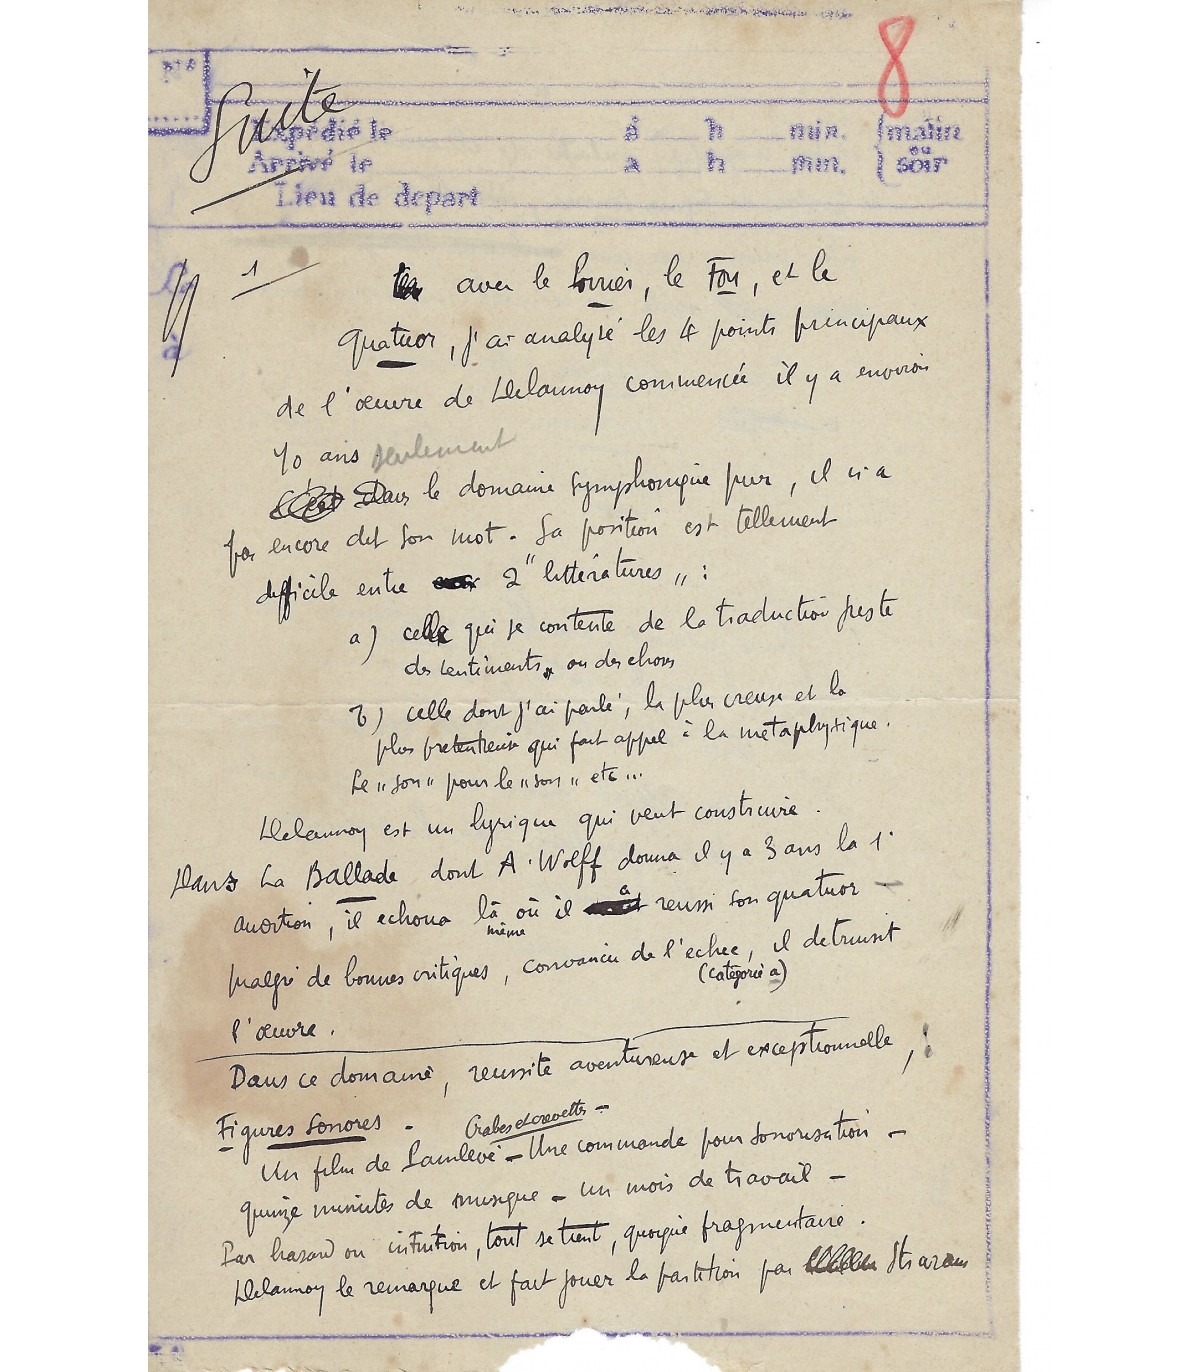 8
N°
Suite
Expédié le à h min. matin
ou
Arrivé le à h min. soir
Lieu de départ
1
avec le Poirier, le Fou, et le
quatuor, j'ai analysé les 4 points principaux
de l'œuvre de Delannoy commencée il y a environ
10 ans seulement
Dans le domaine symphonique pur, il n'a
pas encore dit son mot. Sa position est tellement
difficile entre 2 "littératures" :
a) celle qui se contente de la traduction juste
des sentiments ou des choses
b) celle dont j'ai parlé, la plus creuse et la
plus pretentieuse qui fait appel à la métaphysique.
Le "son" pour le "son" etc...
Delannoy est un lyrique qui veut construire.
Dans La Ballade dont A. Wolff donna il y a 3 ans la 1°
audition, il echoua là même où il a reussi son quatuor -
malgré de bonnes critiques, convaincu de l'echec, il detruisit
(catégorie a)
l'œuvre.
Dans ce domaine, reussite aventureuse et exceptionnelle, :
Figures sonores. Crabes et crevettes -
Un film de Painlevé - Une commande pour sonorisation -
quinze minutes de musique - un mois de travail -
Par hasard ou intuition, tout se tient, quoique fragmentaire.
Delannoy le remarque et fait jouer la partition par Straram